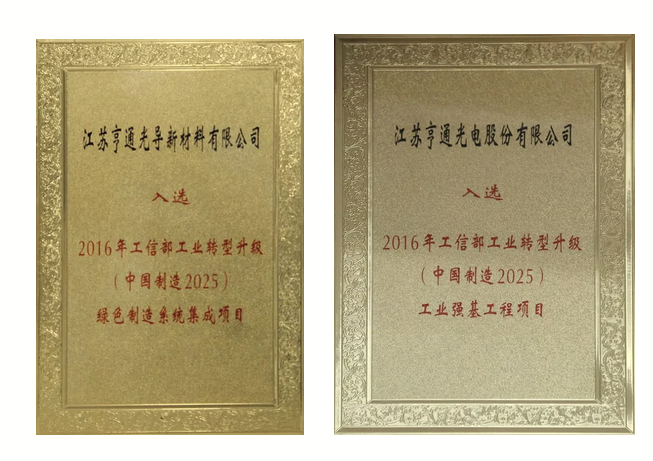 江苏亨通光导新材料有限公司
入选
2016年工信部工业转型升级
（中国制造2025）
绿色制造系统集成项目
江苏亨通光电股份有限公司
入选
2016年工信部工业转型升级
（中国制造2025）
工业强基工程项目